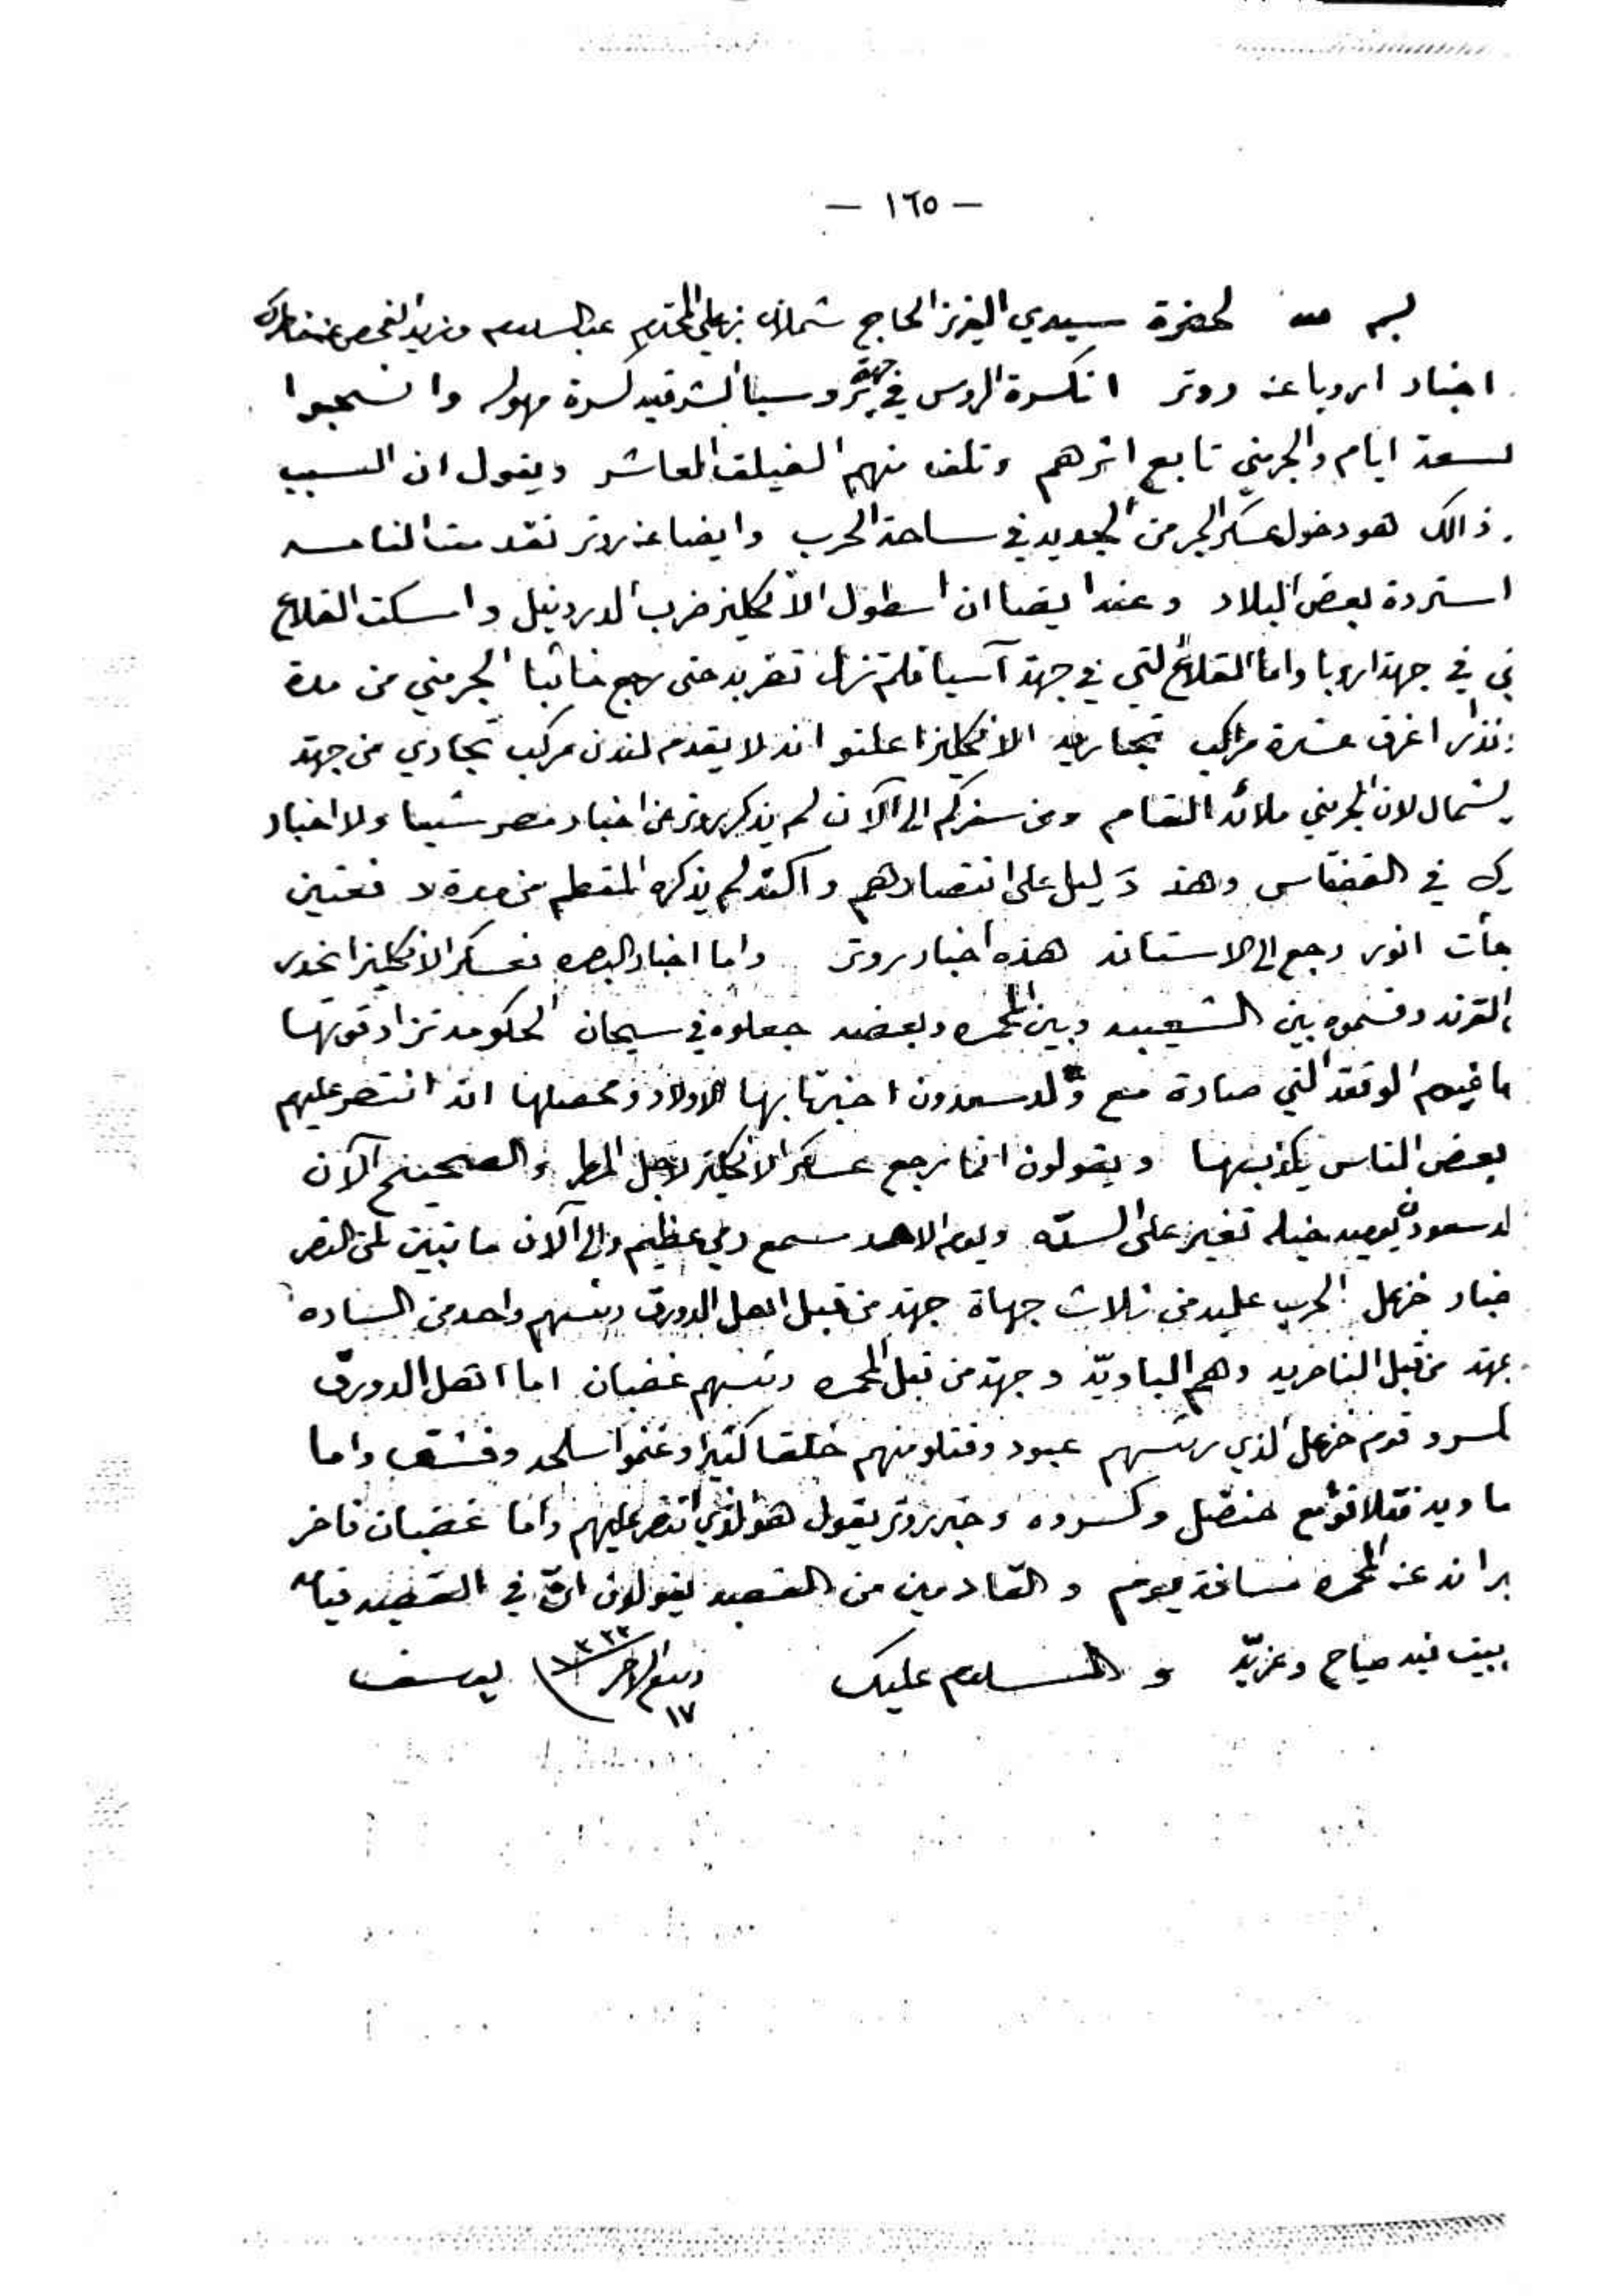 — ١٦٥ —
بسم الله لحضرة سيدي العزيز الحاج شملان بن علي المحترم بعد السلام ومزيد الفحص عن خاطرك
اخبار اروبا عن روتر انكسرة الروس في جهة بروسيا الشرقيه كسرة مهوله وانسحبوا
لسعة ايام والجرمني تابع اثرهم وتلف منهم الفيلق العاشر ويقول ان السبب
ذالك هو دخول عسكر الجرمن الجديد في ساحة الحرب وايضا عن روتر تقدمت النامسه
استردة بعض البلاد وعنه ايضا ان اسطول الانكليز ضرب الدردنيل واسكت القلاع
تي في جهة اروبا واما القلاع التي في جهة آسيا فلم تزل تضربه حتى رجع خائبا الجرمني من مدة
انذار اغرق عشرة مراكب تجاريه الانكليز اعلنو انه لا يقدم لندن مركب تجاري من جهة
لشمال لان الجرمني ملائه القام ومن سفركم الى الآن لم يذكر روتر عن اخبار مصر شيئا ولا اخبار
رك في القفقاس وهذ دليل على انتصارهم واكثر لم يذكره المقطم من مدة لا فعتين
جأت انور رجع الى الاستانه هذه اخبار روتر واما اخبار البصره فعسكر الانكليز انحدر
القرنه وقسموه بين الشعيبه وبين المحمره وبعضه جعلوه في سيحان الحكومه تزاد قوتها
ما فيوم الوقعة التي صارة مع ولد سعدون اخبرتنا بها الاولاد ومحصلها انه انتصر عليهم
بعض الناس يكذبها ويقولون انما رجع عسكر الانكليز لاجل المطر والصحيح الآن
لد سعدون يوميه خيله تغير على السنّه ويوم الاحد سمع رمي عظيم والى الآن ما تبين لمن النصر
خبار خزعل الحرب عليه من ثلاث جهاة جهة من قبل اهل الدورق رئسهم واحد من الساده
جهة من قبل الناصريه وهم الباويّه وجهة من قبل المحمره رئسهم غضبان اما اهل الدورق
كسرو قوم خزعل الذي رئسهم عبود وقتلو منهم خلقا كثيرا وغنموا سلحه وفشق واما
باويه فتلاقو مع حنضل وكسروه وخبر روتر يقول هو الذي انتصر عليهم واما غضبان فاخر
بر انه عن المحمره مسافة يوم والقادمين من القصبه يقولون ان في القصبه قيام
ببيت فيه صياح وعزيّه والسلام عليك ١٧ ربيع الاخر ١٣٣٣ يوسف